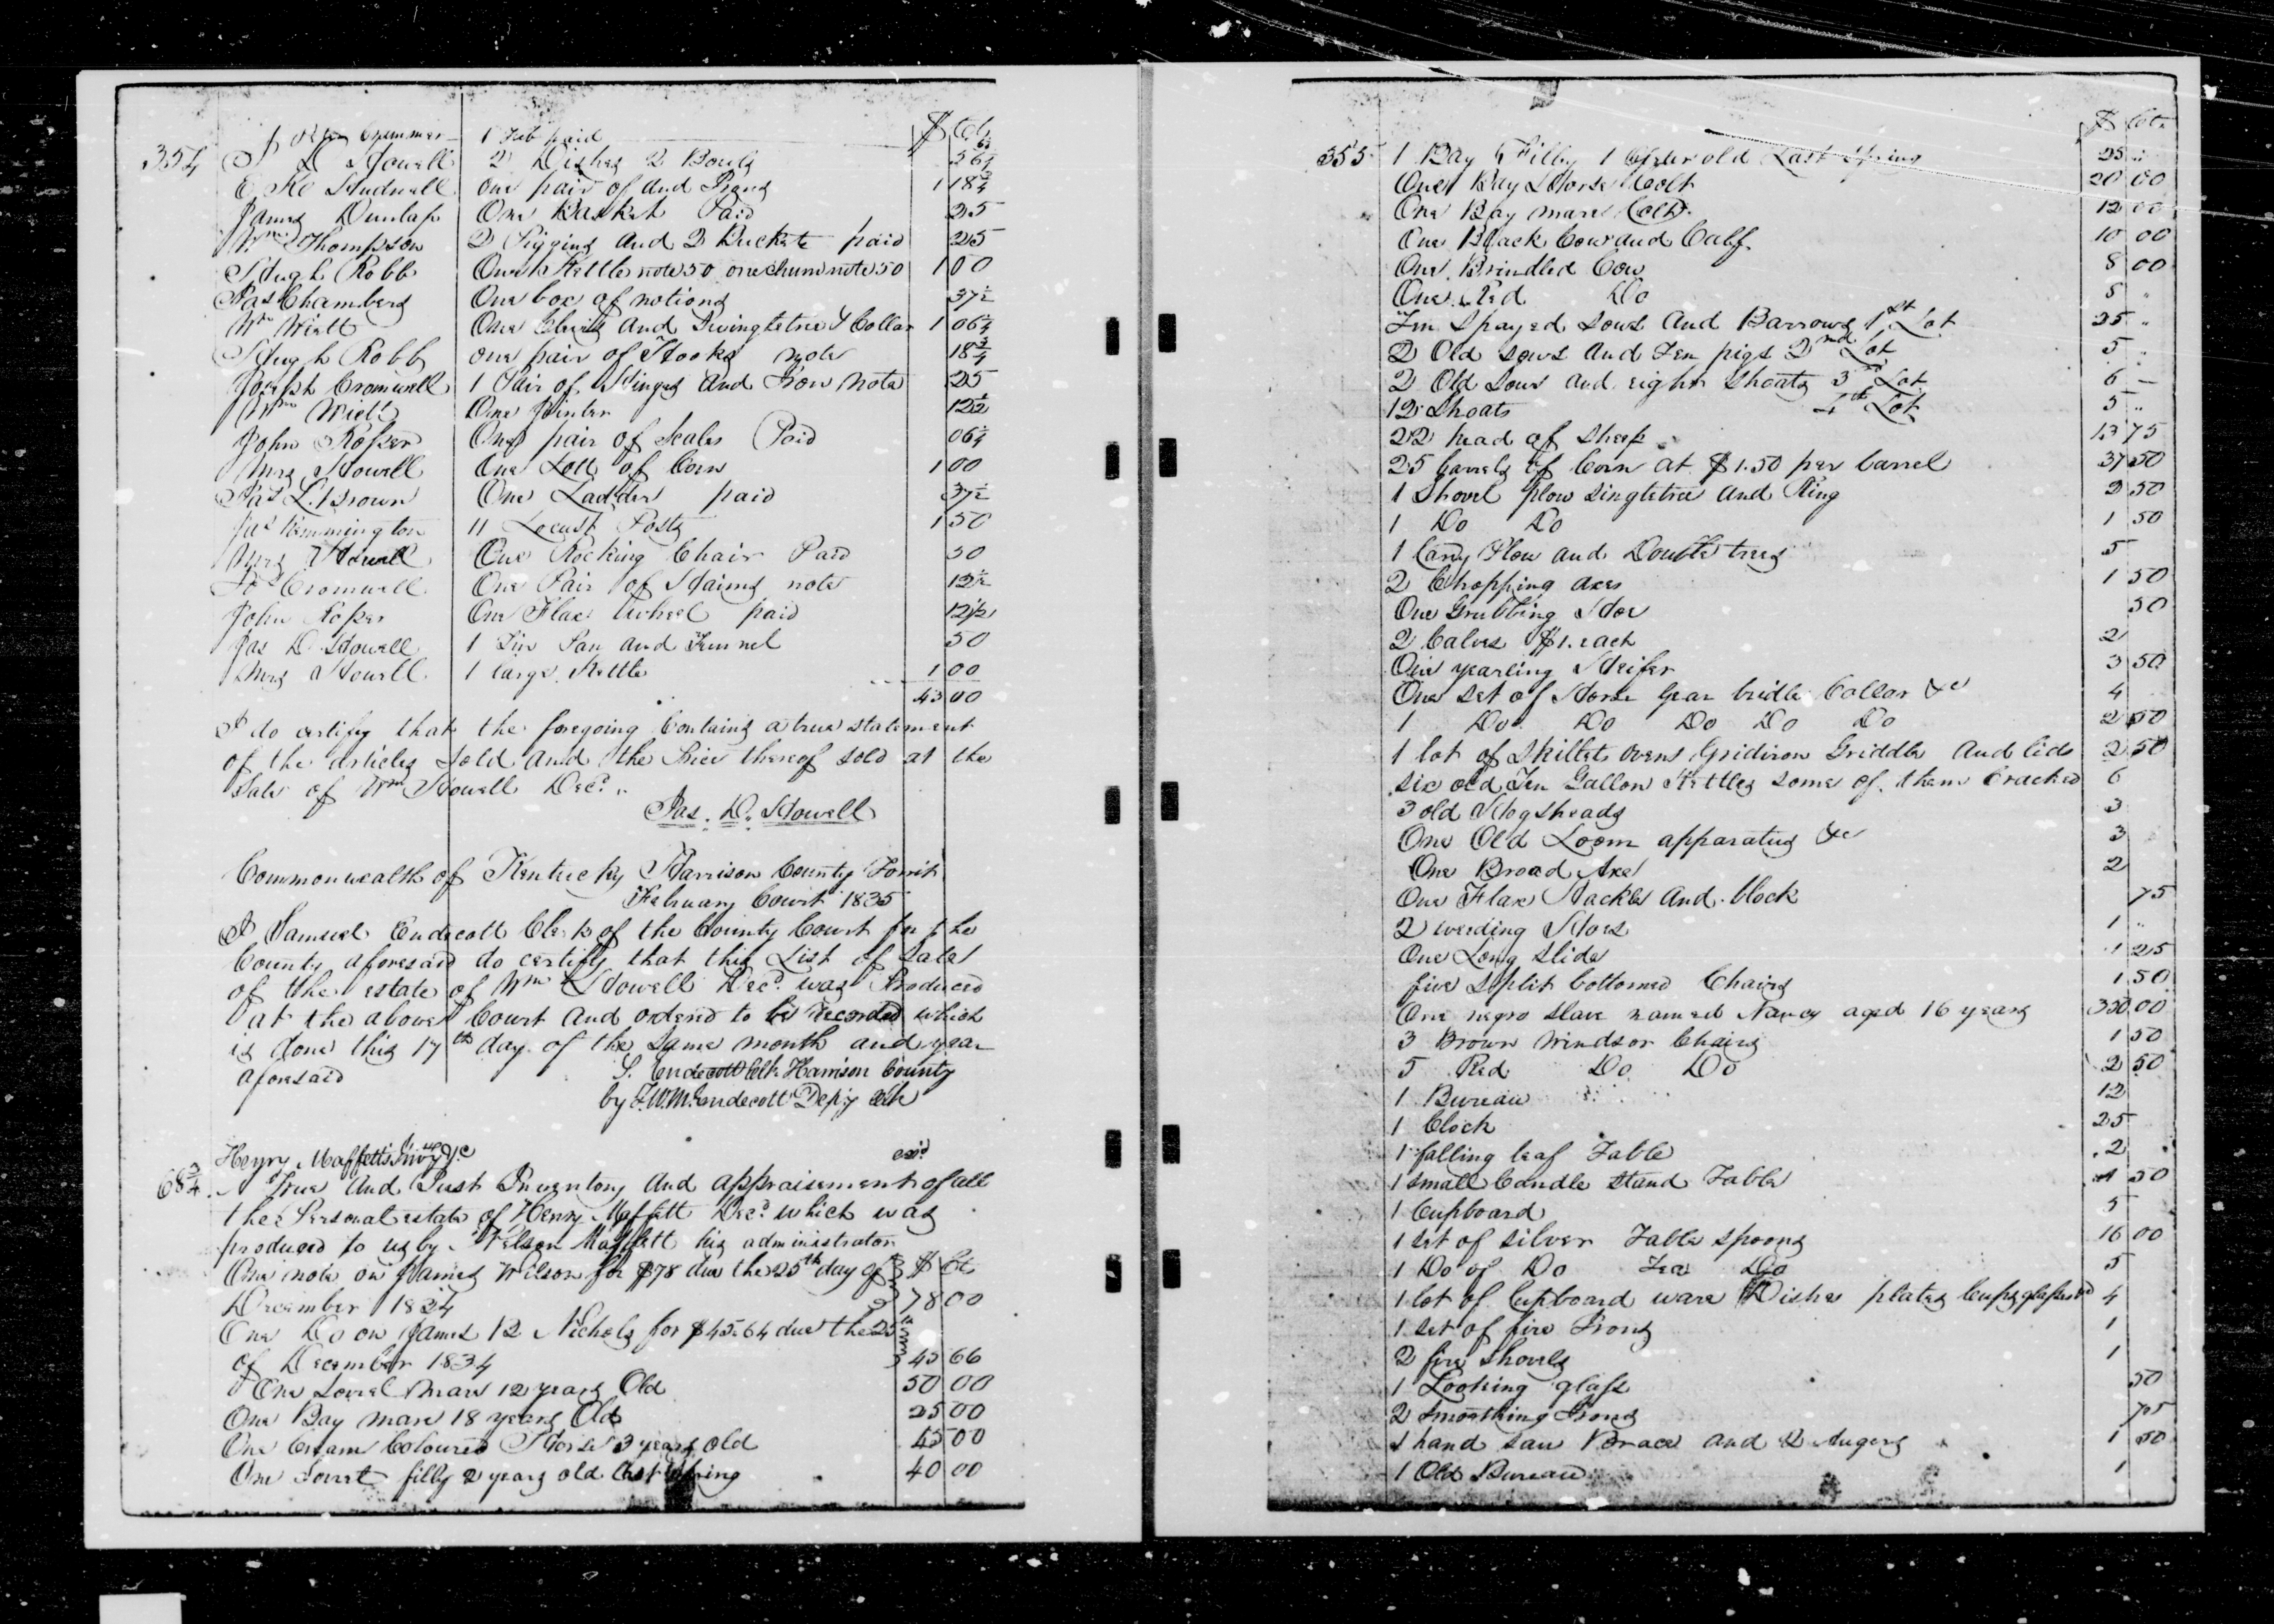 $ Cts
Crummer 1 Tub paid
354 J D Howell 2 Dishes 2 Bowls 56¼
one pair of and Irons 1 18¾
James Dunlap One Basket Paid 25
Wm Thompson 2 Piggins and 2 Buckets paid 25
Hugh Robb One Kettle note 50 one churn note 50 1 00
Jas Chambers One box of notions 37½
Wm Wiett One Clevis and Swingletree & Collar 1 06¼
Hugh Robb one pair of Hooks note 18¾
Joseph Cromwell 1 Pair of Hinges and Iron note 25
Wm Wiett One Jointer 12½
John Roper One pair of Scales Paid 06¼
Mrs Howell One Lott of Corn 1 00
Jas L. Brown One Ladder paid 37½
Jas Remmington 11 Locust Posts 1 50
Mrs Howell One Rocking Chair Paid 50
Jos Cromwell One Pair of Haims note 12½
John Roper One Flax Wheel paid 12½
Jas D Howell 1 Tin Pan and Funnel 50
Mrs Howell 1 large Kettle 1 00
43 00
I do certify that the foregoing Contains a true statement
of the articles sold and the Price thereof sold at the
Sale of Wm Howell Decd.
Jas. D. Howell
Commonwealth of Kentucky Harrison County Towit
February Court 1835
I Samuel Endecott Clerk of the County Court for the
County aforesaid do certify that this List of Sales
of the estate of Wm Howell Decd. was Produced
at the above Court and ordered to be recorded which
is done this 17th day of the same month and year
aforesaid S. Endecott Clk Harrison County
by Endecott Depy Clk
Henry Maffetts Invoy &c exd
68¾ A True and Just Inventory and appraisement of all
the Personal estate of Henry Maffett Decd. which was
produced to us by Nelson Maffett his administrator
One note on James Wilson for $78 due the 25th day of $ Ct
December 1834 78 00
One Do on James 12 Nichols for $45.64 due the 25th
of December 1834 45 66
One Sorrel Mare 12 years Old 50 00
One Bay mare 18 years Old 25 00
One Cream Coloured Horse 3 years old 45 00
One Sorrel filly 2 years old last Spring 40 00
$ Cts
355 1 Bay Filly 1 year old Last Spring 25 "
One Bay Horse Colt 20 00
One Bay mare Colt 12 00
One Black Cow and Calf 10 00
One Brindled Cow 8 00
One Red Do 8 "
Ten Spayed Sows and Barrows 1st Lot 25 "
2 Old sows and Ten pigs 2nd Lot 5 "
2 Old Sows and eight Shoats 3rd Lot 6 —
12 Shoats 4th Lot 5 "
22 head of Sheep 13 75
25 barrels of Corn at $1.50 per barrel 37 50
1 Shovel plow singletree and Ring 2 50
1 Do Do 1 50
1 Cary Plow and Double trees 5
2 Chopping axes 1 50
One Grubbing Hoe 50
2 Calves $1. each 2
One yearling Heifer 3 50
One set of Horse Gear bridle Collar &c 4
1 Do Do Do Do Do 2 50
1 lot of Skillets ovens Gridiron Griddle and lids 2 50
six old Ten Gallon Kettles some of them Cracked 6
3 old Hogsheads 3
One Old Loom apparatus &c 3
One Broad Axe 2
One Flax Hackle and block 75
2 weeding Hoes 1 "
One Long Slide 1 25
five split bottomed Chairs 1 50
One negro Slave named Nancy aged 16 years 350 00
3 Brown Windsor Chairs 1 50
5 Red Do Do 2 50
1 Bureau 12
1 Clock 25
1 falling leaf Table 2
1 small Candle Stand Table 1 50
1 Cupboard 5
1 set of silver Table spoons 16 00
1 Do of Do Tea Do 5
1 lot of Cupboard ware Dishes plates Cups glasses &c 4
1 set of fire Irons 1
2 fire shovels 1
1 Looking glass 50
2 Smoothing Irons 75
1 hand saw Brace and 2 Augers 1 50
1 Old Bureau 1